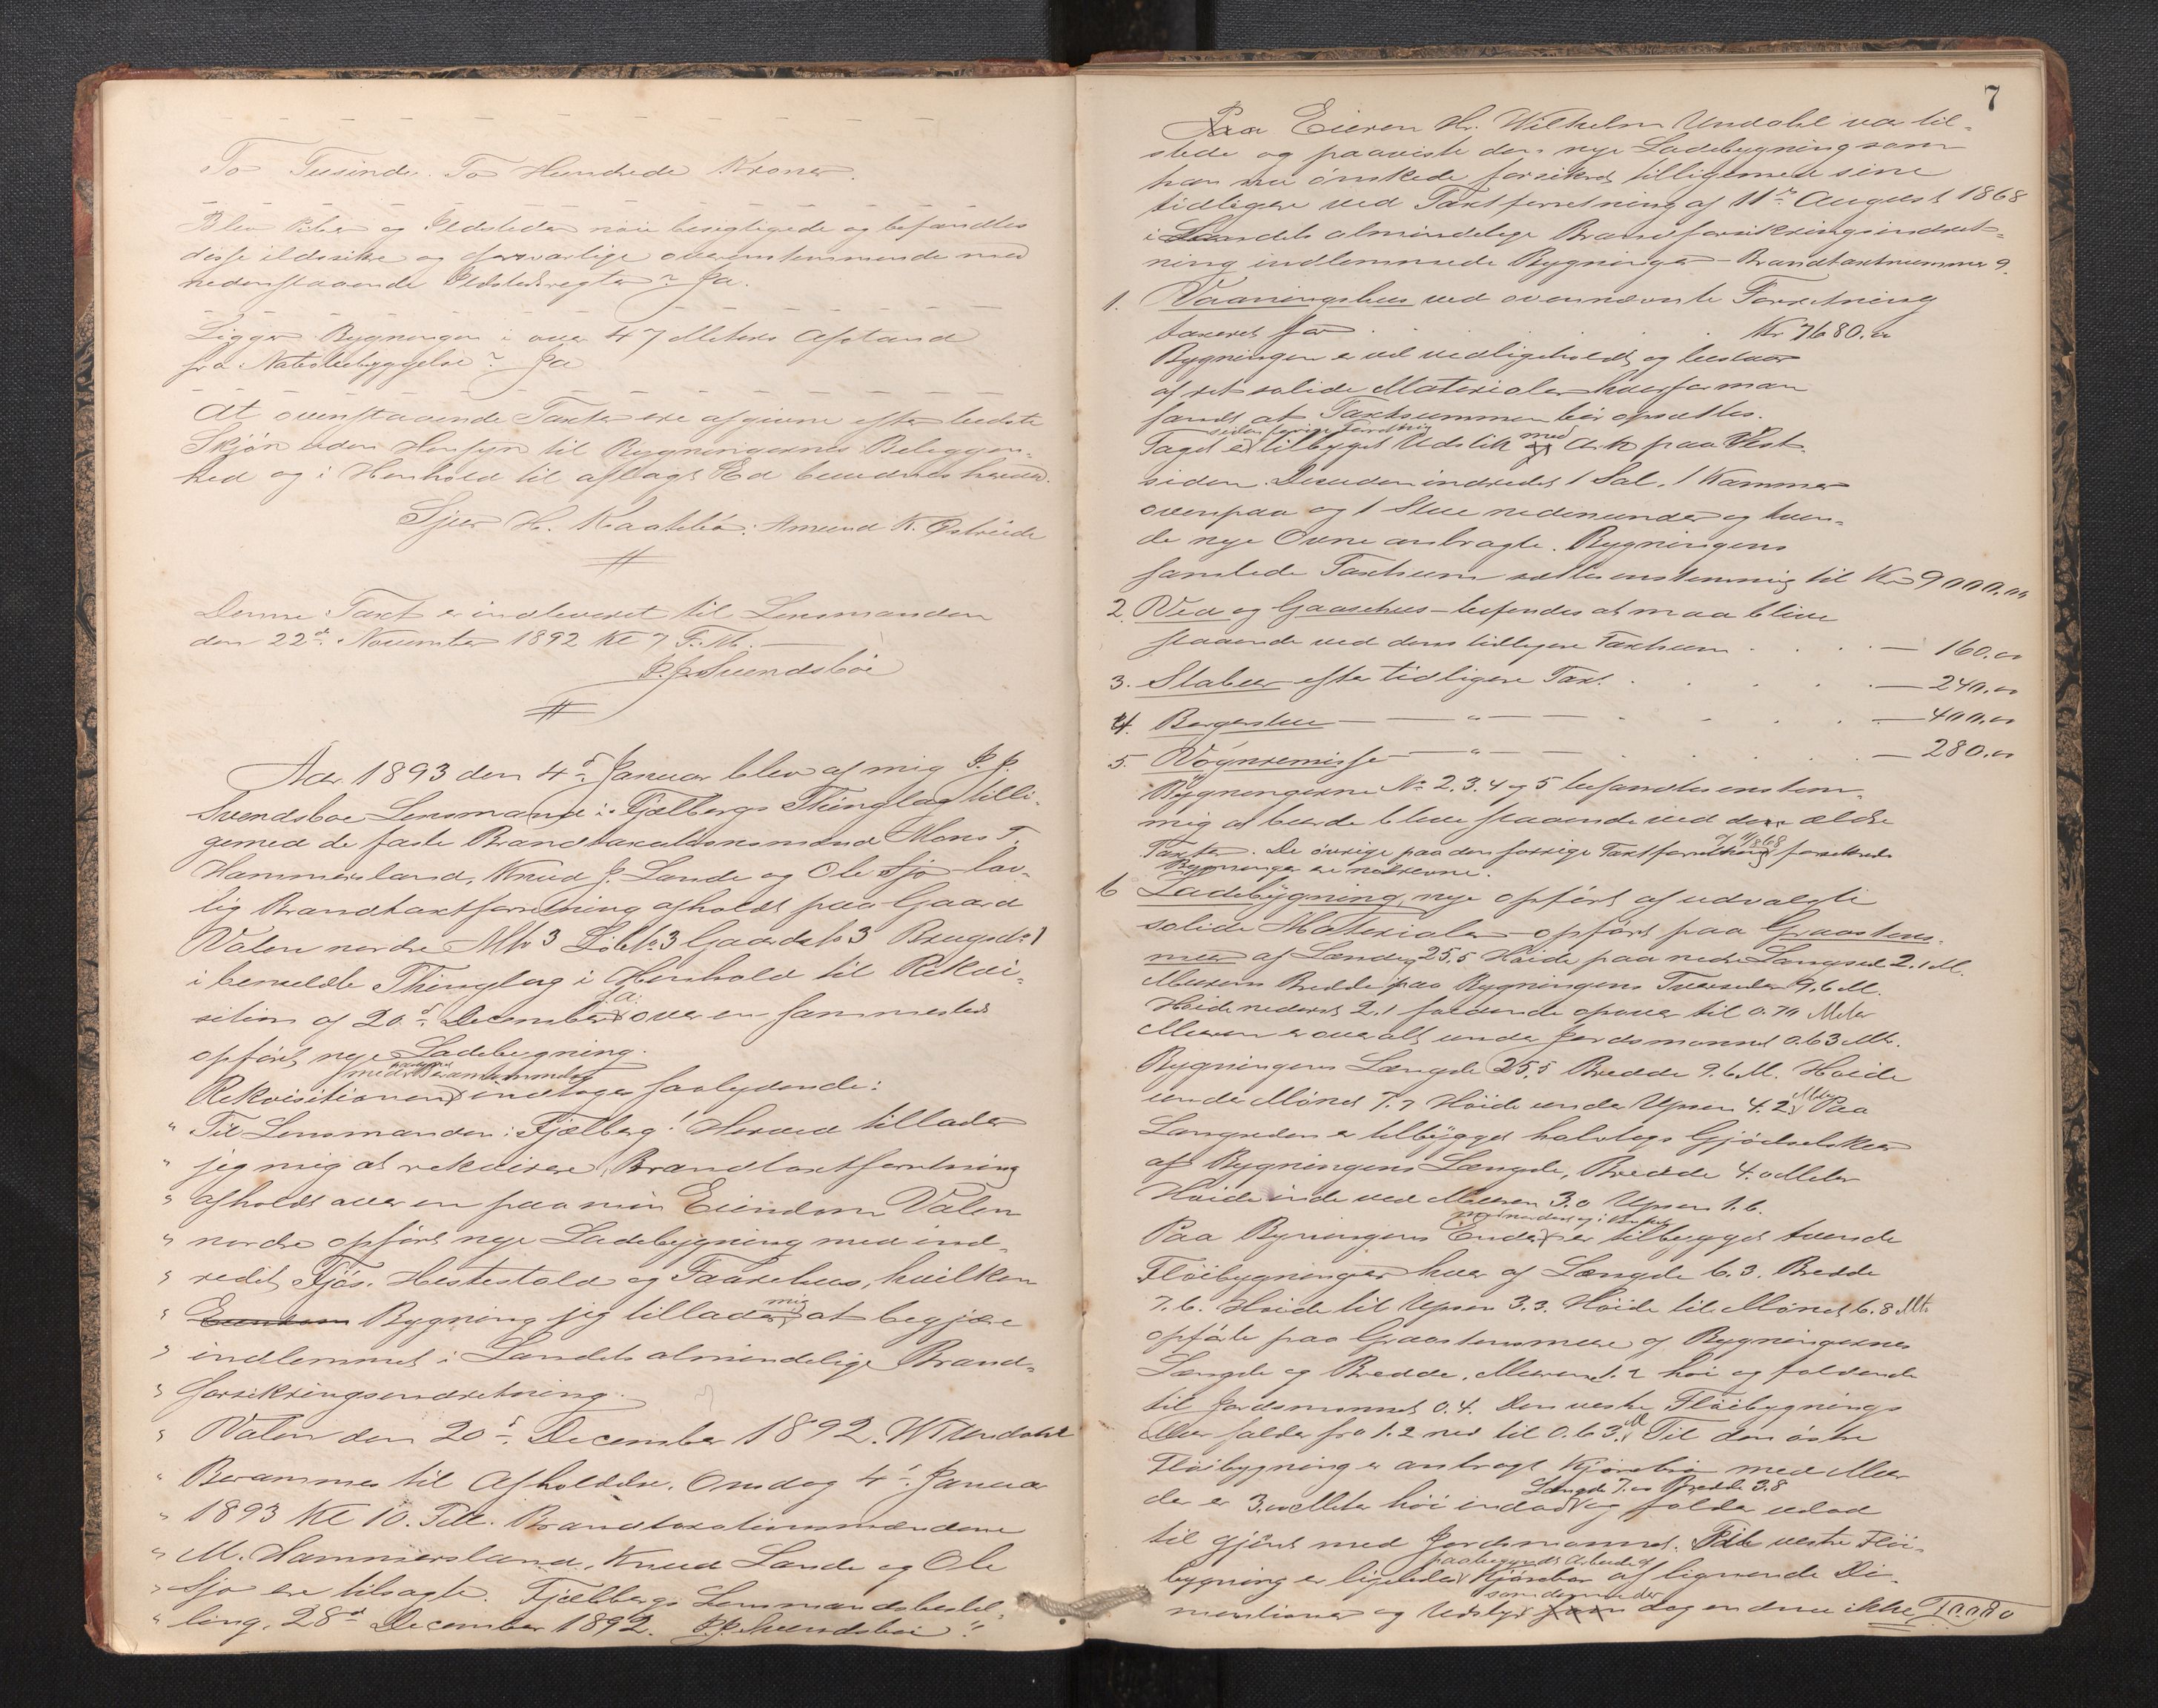 To Tusinde To Hundrede Kroner.
Blev Piber og Ildsteder nöie besigtigede og befandtes
disse ildsikre og forsvarlige overensstemmende med
nedenstaaende Ildstedsregler? Ja.
Ligger Bygningen i over 47 Meters Afstand
fra Nabobebyggelse? Ja
At ovenstaaende Taxter ere afgivne efter bedste
Skjön uden Hensyn til Bygningernes Beliggen-
hed og i Henhold til aflagt Ed bevidnes herved.
Sjur H. Kaateböe. Amund K. Östreide
Denne Taxt er indleveret til Lensmanden
den 22de November 1892 Kl 7 F.M.
P. J. Svendsböe
Aar 1893 den 4de Januar blev af mig P. J.
Svendsboe Lensmand i Fjælbergs Thinglag tilli-
gemed de faste Brandtaxationsmænd Mons T.
Hammersland, Knud J. Lande og Ole Sjo lov-
lig Brandtaxtforretning afholdt paa Gaard
Valen nordre Mtr 3 Löbn 3 Gaards No 3 Brugs No 1
i bemeldte Thinglag i Henhold til Rekvi-
sition af 20de December f.a. over en sammesteds
opfört nye Ladebygning.
med paategnet Berammelse
Rekvisitionen indtages saalydende:
" Til Lensmanden i Fjælberg! Herved tillader
" jeg mig at rekvirere Brandtaxtforretning
" afholdt over en paa min Eiendom Valen
" nordre opfört nye Ladebygning med ind-
" redet Fjös, Hestestald og Faarehus, hvilken
" Eiendom Bygning jeg tillader mig at begjære
" indlemmet i Landets almindelige Brand-
" forsikringsindretning.
" Valen den 20de December 1892. W Undahl
" Berammes til Afholdelse Onsdag 4de Januar
" 1893 Kl 10. Fm. Brandtaxationsmændene
" M. Hammersland, Knud Lande og Ole
" Sjo ere tilsagte. Fjælbergs Lensmandsbestil-
" ling, 28de December 1892. P. J. Svendsböe."
7
Paa Eieren Hr. Wilhelm Undahl var til-
stede og paaviste den nye Ladebygning som
han nu önskede forsikret tilligemed sine
tidligere ved Taxtforretning af 11te August 1868
i Landets almindelige Brandforsikringsindret-
ning indlemmede Bygninger - Brandtaxtnummer 9.
1. Vaaningshus ved ovennævnte Forretning
taxeret for . . . Kr 7680.00
Bygningen er vel vedligeholdt og bestaar
af ret solide Materialer hvorfor man
fandt at Taxtsummen bör opsættes.
siden forrige Forretning
Taget er tilbygget Udstik med Ark paa Vest-
siden. Desuden indredet 1 Sal, 1 Kammer
ovenpaa og 1 Stue nedenunder og tven-
de nye Ovne anbragte. Bygningens
samlede Taxtsum sættes enstemmig til Kr 9000.00
2. Ved og Gaasehus - befandtes at maa blive
staaende ved dens tidligere Taxtsum . . . — 160.00
3. Stabur efter tidligere Taxt . . . — 240.00
4. Borgerstue — " — . . . — 400.00
5. Vognremisse — " — . . . — 280.00
Bygningerne No 2. 3. 4 og 5 befandtes enstem-
mig at burde blive staaende ved den ældre
Taxter. De övrige paa den forrige Taxtforretning af 11/8 68 forsikrede
Bygninger ere nedrevne.
6 Ladebygning, nye opfört af udvalgte
solide Materialer opfört paa Graastens-
muur af Længde 25.5 Höide paa nedre Langside 2.1 M.
Murens Bredde paa Bygningens Tværsider 9.6 M.
Höide nederst 2.1 faldende opover til 0.70 Meter
Muren er overalt under Jordsmonnet 0.63 Mtr.
Bygningens Længde 25.5 Bredde 9.6 M. Höide
under Mönet 7.7 Höide under Upsen 4.2 Meter Paa
Langsiden er tilbygget halvtags Gjödselskur
af Bygningens Længde, Bredde 4.0 Meter
Höide inde ved Muren 3.0 Upsen 1.6.
Paa Bygningens Ender er tilbygget tvende
Flöibygninger hver af Længde 6.3. Bredde
7.6. Höide til Upsen 3.3. Höide til Mönet 6.8 Mtr.
opförte paa Graastensmure af Bygningernes
Længde og Bredde. Murene 1.2 höi og faldende
til Jordsmonnet 0.4. Den vestre Flöibygnings
Mur falder fra 1.2 ned til 0.63 M Til den östre
Flöibygning er anbragt Kjörebro med Mur
Længde 7.0 Bredde 3.8
der er 3.00 Meter höi indad og falder udad
til gjönt med Jordsmonnet. Til vestre Flöi-
paabegyndt Arbeide af
bygning er ligeledes Kjörebro af lignende Di-
mentioner og Udstyr som dog endnu ikke